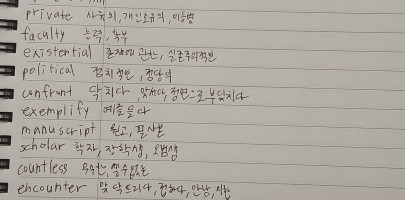 private 사유의, 개인소유의, 이등병
faculty 능력, 학부
existential 존재에 관한, 실존주의적인
political 정치적인, 정당의
confront 닥치다, 맞서다, 정면으로 부딪치다
exemplify 예를 들다
manuscript 원고, 필사본
scholar 학자, 장학생, 모범생
countless 무수한, 셀 수 없는
encounter 맞닥뜨리다, 접하다, 만남, 시합